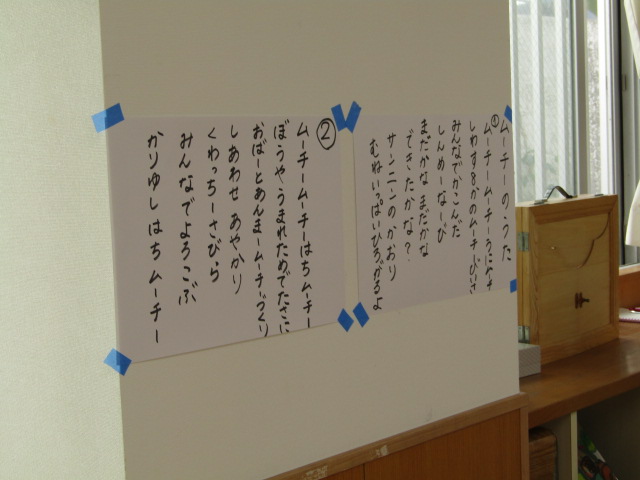 ムーチーのうた
①
ムーチームーチーうにムーチー
しわすようかのムーチーびーさ
みんなでかこんだ
しんめーなーび
まだかな まだかな
できたかな?
サンニンのかおり
むねいっぱいひろがるよ
②
ムーチームーチーはちムーチー
ぼうやうまれためでたさに
おばーとあんまームーチーづくり
しあわせ あやかり
くわっちーさびら
みんなでよろこぶ
かりゆしはちムーチー